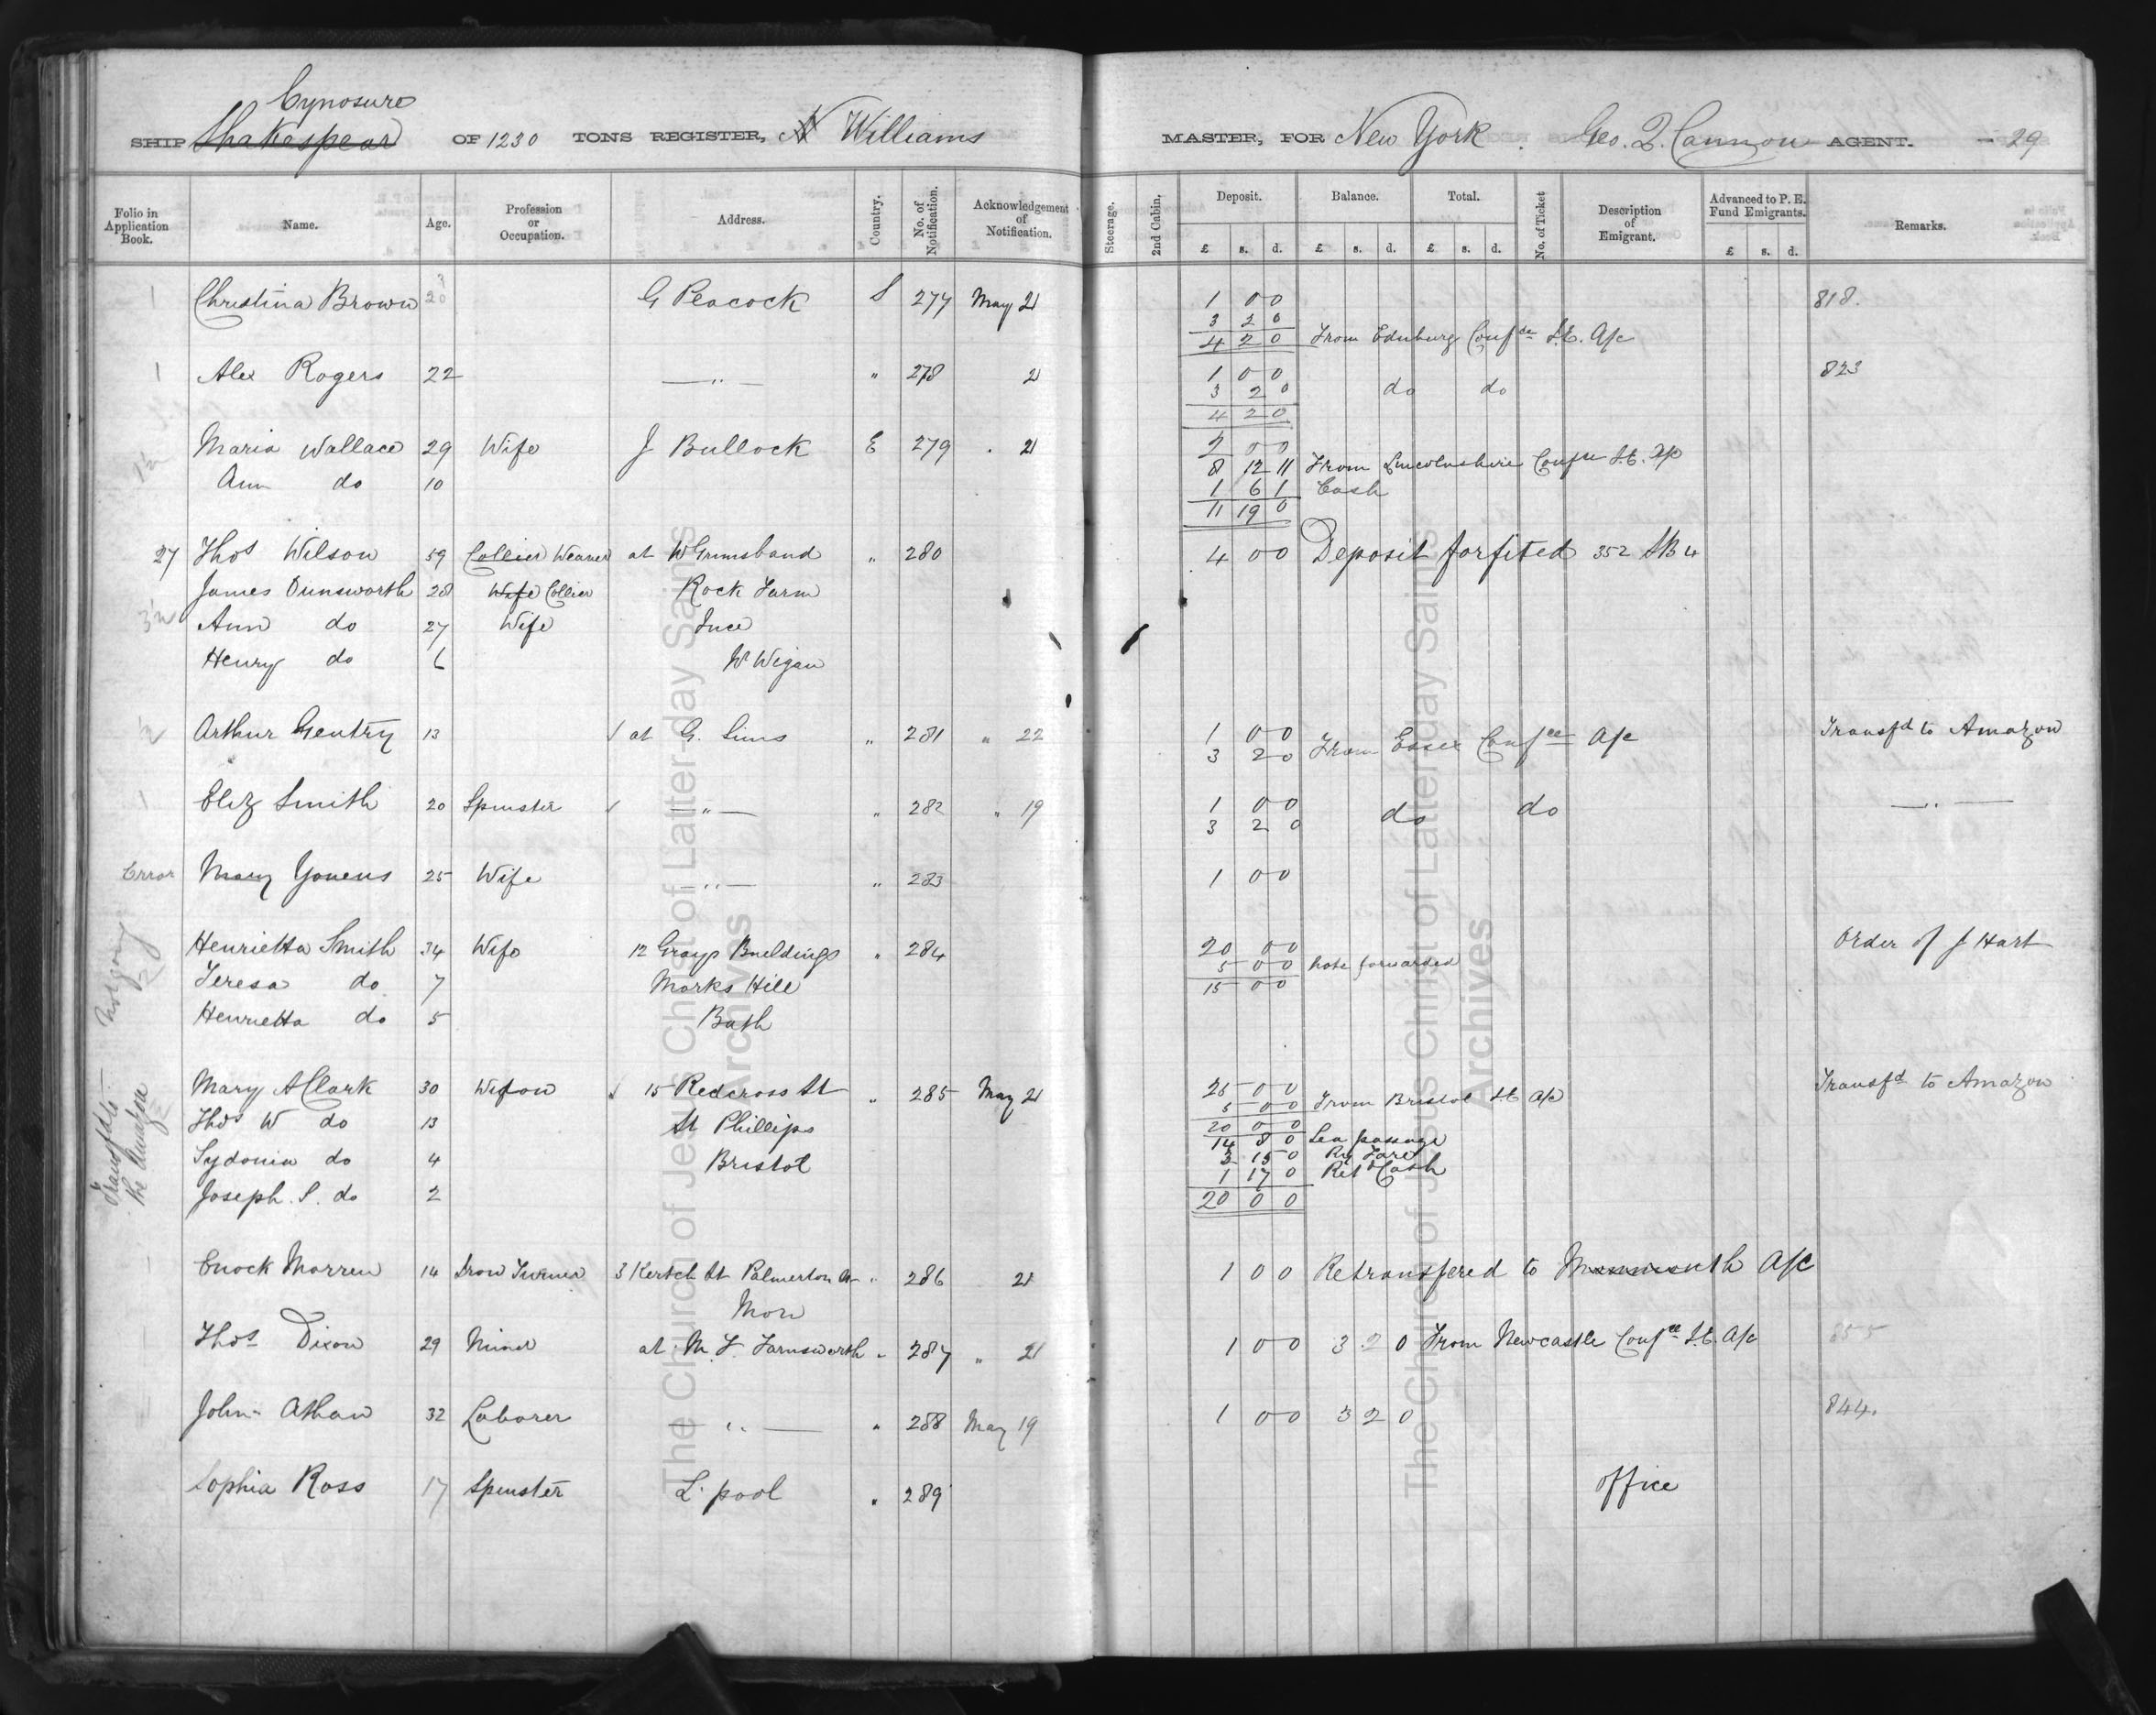 Cynosure
SHIP Shakespear OF 1230 TONS REGISTER, N Williams MASTER, FOR New York Geo. Q. Cannon AGENT. - 29
Folio in Application Book. Name. Age. Profession or Occupation. Address. Country. No. of Notification. Acknowledgement of Notification. Steerage. 2nd Cabin. Deposit. Balance. Total. No. of Ticket Description of Emigrant. Advanced to P. E. Fund Emigrants. Remarks.
£ s. d. £ s. d. £ s. d. £ s. d.
1 Christina Brown 20 G Peacock S 277 May 21 1 0 0 818.
3 2 0
4 2 0 From Edinburg Confce I.E. A/c
1 Alex Rogers 22 — " — " 278 21 1 0 0 823
3 2 0 do do
4 2 0
Maria Wallace 29 Wife J Bullock E 279 . 21 2 0 0
8 12 11 From Lincolnshire Confce I.E. A/c
Ann do 10 1 6 1 Cash
11 19 0
27 Thos Wilson 59 Collier Weaver at W Grimsband " 280 4 0 0 Deposit forfited 352 SB 4
James Dunsworth 28 Wife Collier Rock Farm
Ann do 27 Wife Ince
Henry do 6 Nr Wigan
Arthur Gentry 13 at G. Sims " 281 " 22 1 0 0 Transfd to Amazon
3 2 0 From Essex Confce A/c
1 Eliz Smith 20 Spinster — " — " 282 " 19 1 0 0 — " —
3 2 0 do do
Error Mary Youens 25 Wife — " — " 283 1 0 0
Henrietta Smith 34 Wife 12 Grays Buildings " 284 20 0 0 Order of J Hart
5 0 0 note forwarded
Teresa do 7 Morks Hill 15 0 0
Henrietta do 5 Bath
Not going
Transfd to the Amazon
Mary A Clark 30 Widow 15 Redcross St " 285 May 21 25 0 0 Transfd to Amazon
5 0 0 From Bristol I.E. A/c
Thos W do 13 St Phillips 20 0 0
14 8 0 Sea passage
Sydonia do 4 Bristol 3 15 0 Ry Fare
1 17 0 Retd Cash
Joseph. S. do 2 20 0 0
Enock Morren 14 Iron Turner 3 Kertch St Palmerton " 286 21 1 0 0 Retransfered to Monmouth A/c
Mon
Thos Dixon 29 Miner at M. F. Farnsworth " 287 " 21 1 0 0 3 2 0 From Newcastle Confce I.E. A/c 855
John Athan 32 Laborer — " — " 288 May 19 1 0 0 3 2 0 844.
Sophia Ross 17 Spinster L'pool " 289 office
The Church of Jesus Christ of Latter-day Saints
Archives
The Church of Jesus Christ of Latter-day Saints
Archives